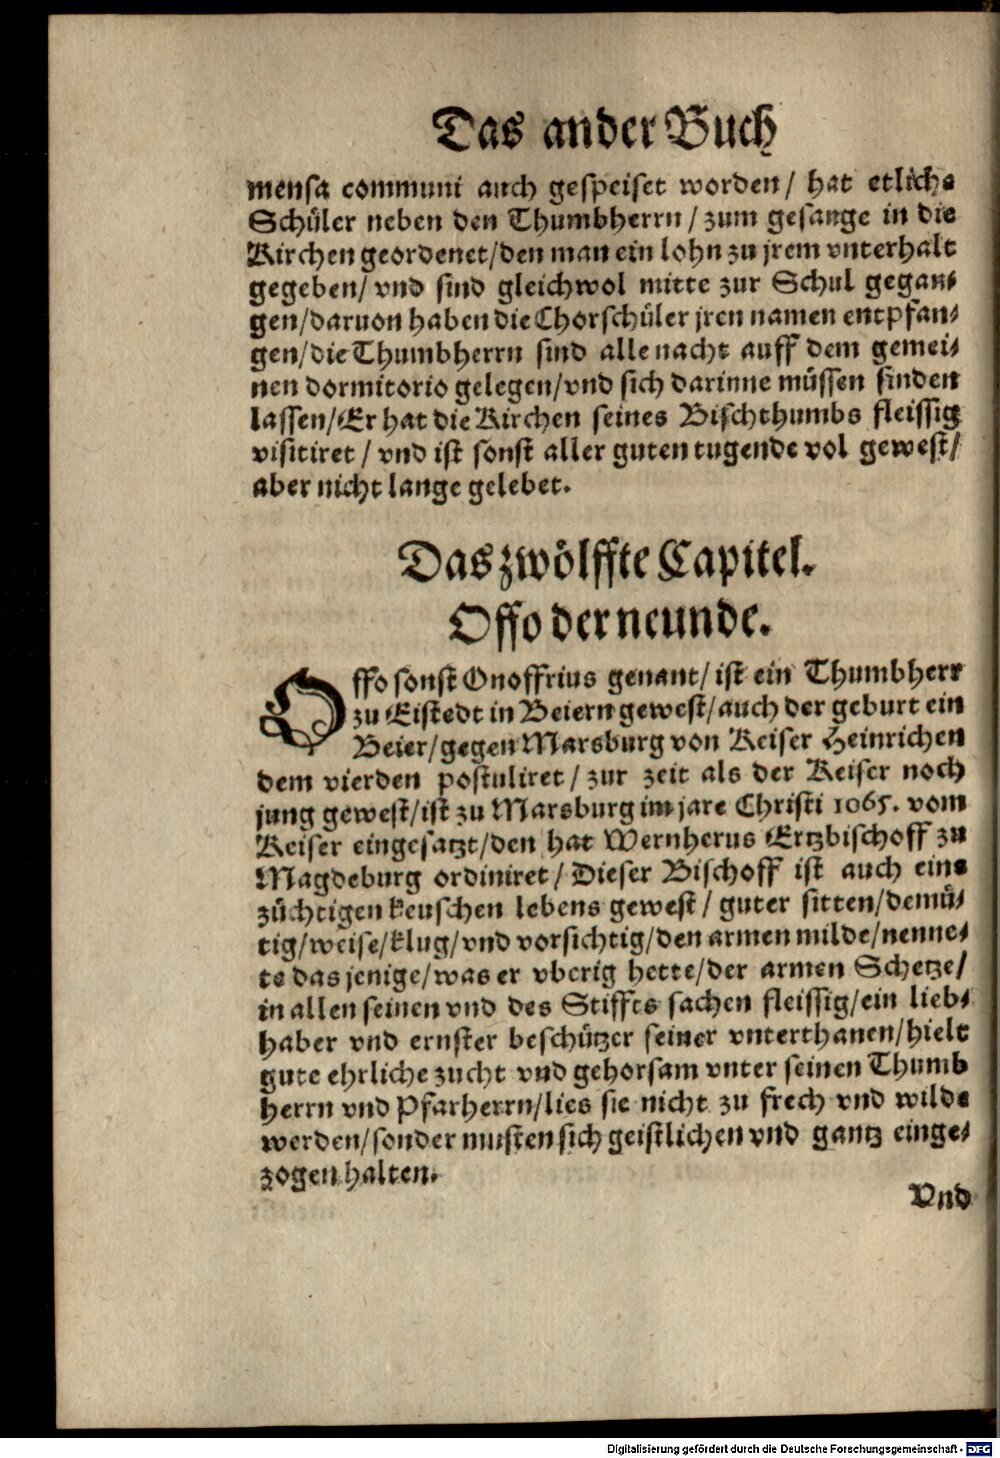 Das ander Buch
mensa communi auch gespeiset worden/ hat etliche
Schüler neben den Thumbherrn/ zum gesange in die
Kirchen geordenet/den man ein lohn zu jrem vnterhalt
gegeben/ vnd sind gleichwol mitte zur Schul gegan-
gen/daruon haben die Chorschüler jren namen entpfan-
gen/die Thumbherrn sind alle nacht auff dem gemei-
nen dormitorio gelegen/vnd sich darinne müssen finden
lassen/Er hat die Kirchen seines Bischthumbs fleissig
visitiret/ vnd ist sonst aller guten tugende vol gewest/
aber nicht lange gelebet.
Das zwölffte Capitel.
Offo der neunde.
Offo sonst Onoffrius genant/ ist ein Thumbherr
zu Eistedt in Beiern gewest/auch der geburt ein
Beier/gegen Marsburg von Keiser Heinrichen
dem vierden postuliret/ zur zeit als der Keiser noch
jung gewest/ist zu Marsburg im jare Christi 1065. vom
Keiser eingesatzt/den hat Wernherus Ertzbischoff zu
Magdeburg ordiniret/ Dieser Bischoff ist auch eins
züchtigen keuschen lebens gewest/ guter sitten/demü-
tig/weise/klug/vnd vorsichtig/den armen milde/nenne-
te das jenige/was er vberig hette/der armen Schetze/
in allen seinen vnd des Stiffts sachen fleissig/ein lieb-
haber vnd ernster beschützer seiner vnterthanen/hielt
gute ehrliche zucht vnd gehorsam vnter seinen Thumb
herrn vnd Pfarherrn/lies sie nicht zu frech vnd wilde
werden/sonder musten sich geistlichen vnd gantz einge-
zogen halten.
Vnd
Digitalisierung gefördert durch die Deutsche Forschungsgemeinschaft - DFG